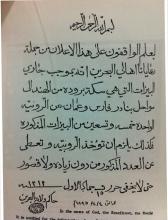 بسم الله الرحمن الرحيم
ليعلم الواقفون على هذا الاعلان من جملة
رعايانا اهالي البحرين انه بموجب جاري
البيزات التي هي سكة بروده من الهندال
سواحل بنادر فارس وعمان عن الروبية
الواحدة خمسة وتسعين من البيزات المذكوره
كذلك يلزم ان تؤخذ الروبيه وتعطى
عن العدد المذكور من دون زيادة ولا قصور
حتى لا يخفى حرر في جمادى الاول
In the name of God, the Beneficent, the